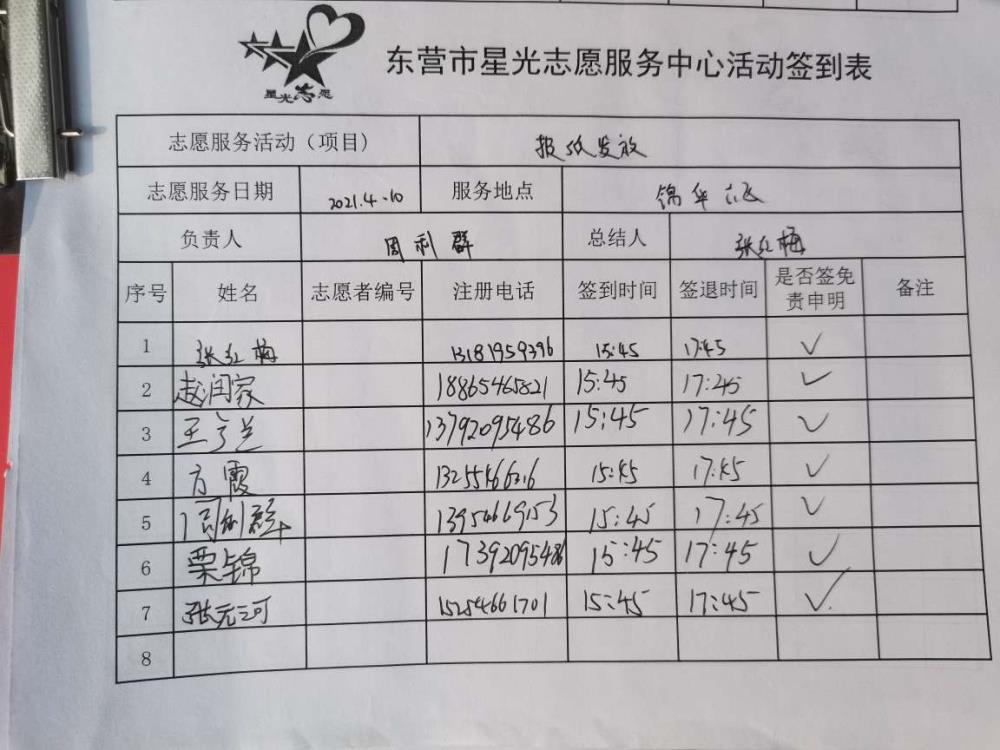 星光志愿
东营市星光志愿服务中心活动签到表
志愿服务活动（项目） 报纸发放
志愿服务日期 2021.4.10 服务地点 锦华
负责人 周利群 总结人 张红梅
序号 姓名 志愿者编号 注册电话 签到时间 签退时间 是否签免责申明 备注
1 张红梅 13181959396 15:45 17:45 ✓
2 赵润家 18865465821 15:45 17:45 ✓
3 13792095486 15:45 17:45 ✓
4 方霞 15:45 17:45 ✓
5 周利群 13954669153 15:45 17:45 ✓
6 栗锦 17392095486 15:45 17:45 ✓
7 张元河 15254661701 15:45 17:45 ✓
8